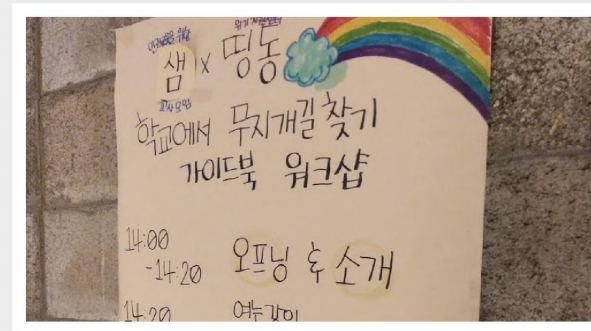 샘 x 띵동
교사모임
학교에서 무지개길 찾기
가이드북 워크샵
14:00
-14:20 오프닝 & 소개
14:20 여는